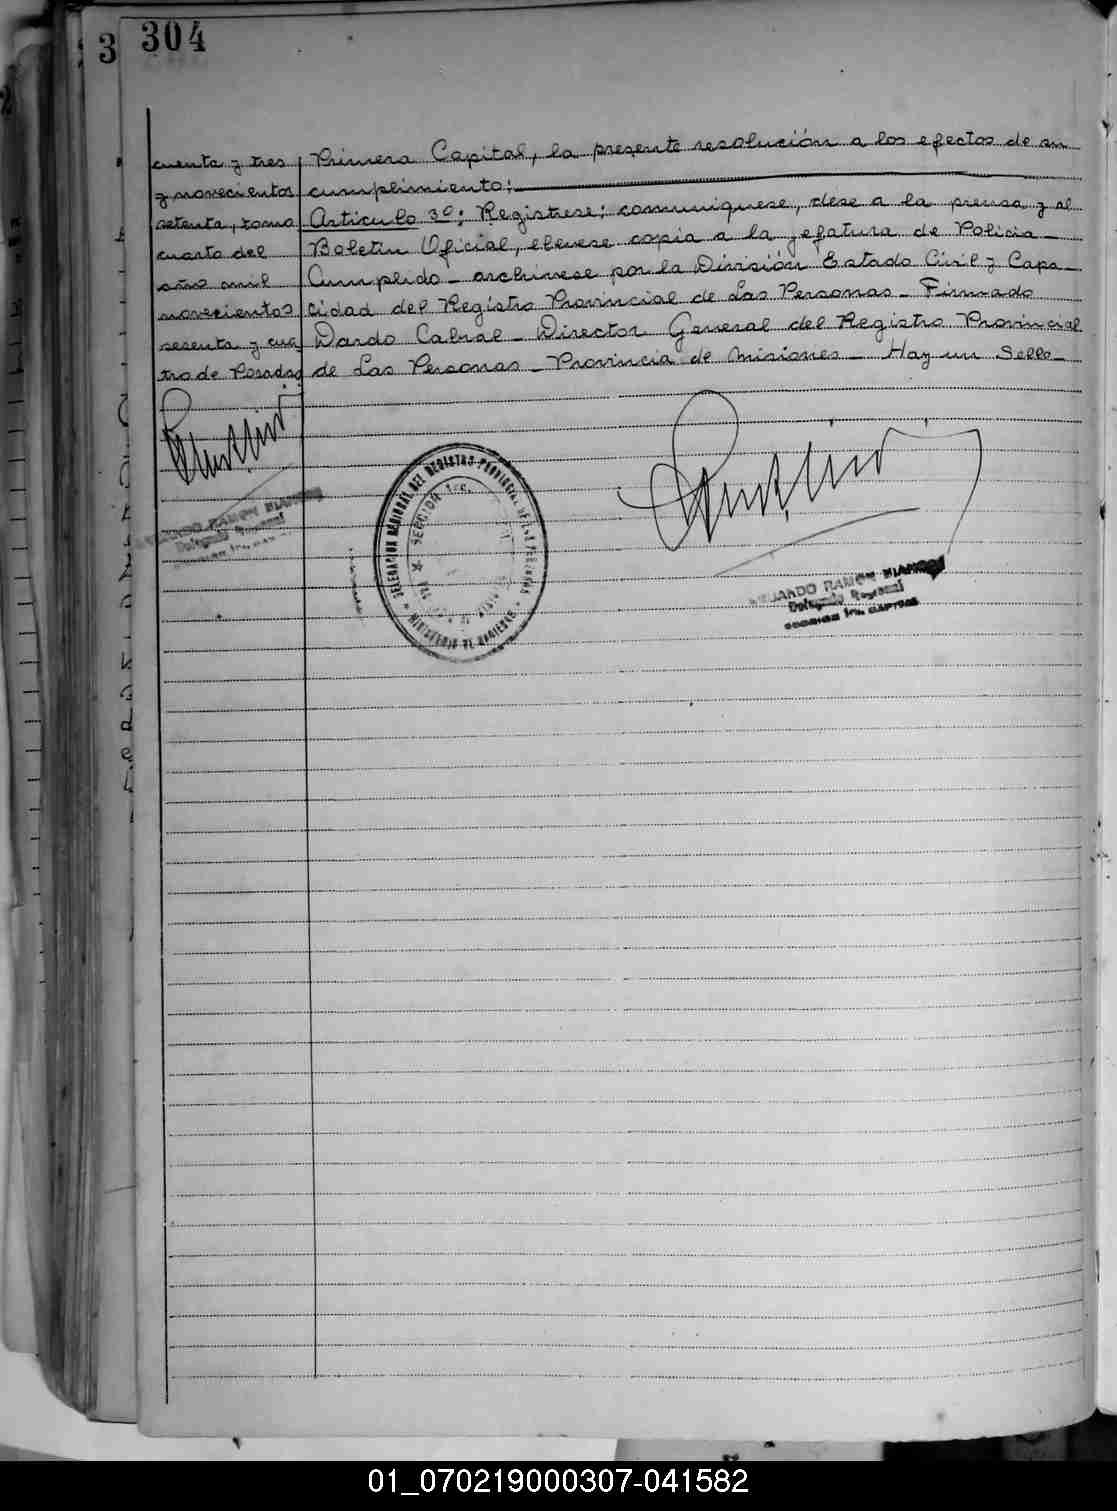 304
3
cuenta y tres
y novecientos
setenta, tomo
cuarto del
año mil
novecientos
sesenta y cua
tro de Posadas
Primera Capital, la presente resolución a los efectos de su
cumplimiento:
Articulo 3º: Registrese; comuniquese, dese a la prensa y al
Boletin Oficial, elevese copia a la jefatura de Policia
Cumplido - archivese por la División Estado Civil y Capa-
cidad del Registro Provincial de Las Personas - Firmado
Dardo Cabral - Director General del Registro Provincial
de Las Personas - Provincia de Misiones - Hay un Sello-
DELEGACION REGIONAL DEL REGISTRO PROVINCIAL DE LAS PERSONAS
SECCION
MINISTERIO DE GOBIERNO
RAMON
Delegado Regional
RAMON
Delegado Regional
01_070219000307-041582